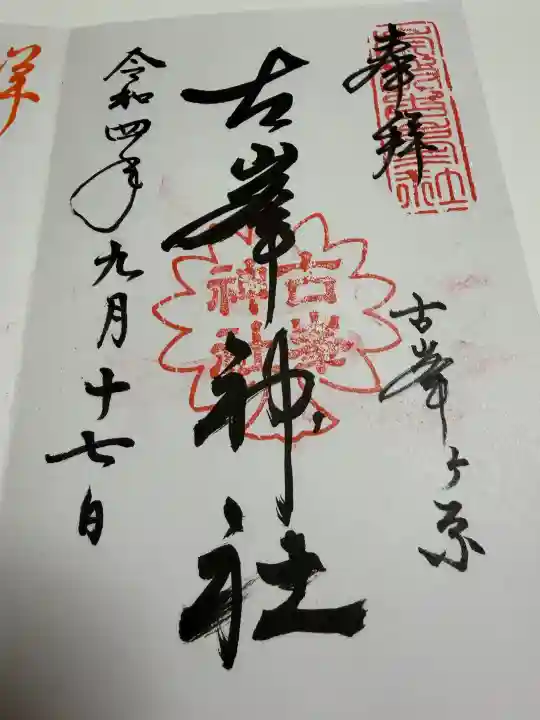 奉拝
古峯ヶ原
古峯神社
古峯
神社
令和四年九月十七日